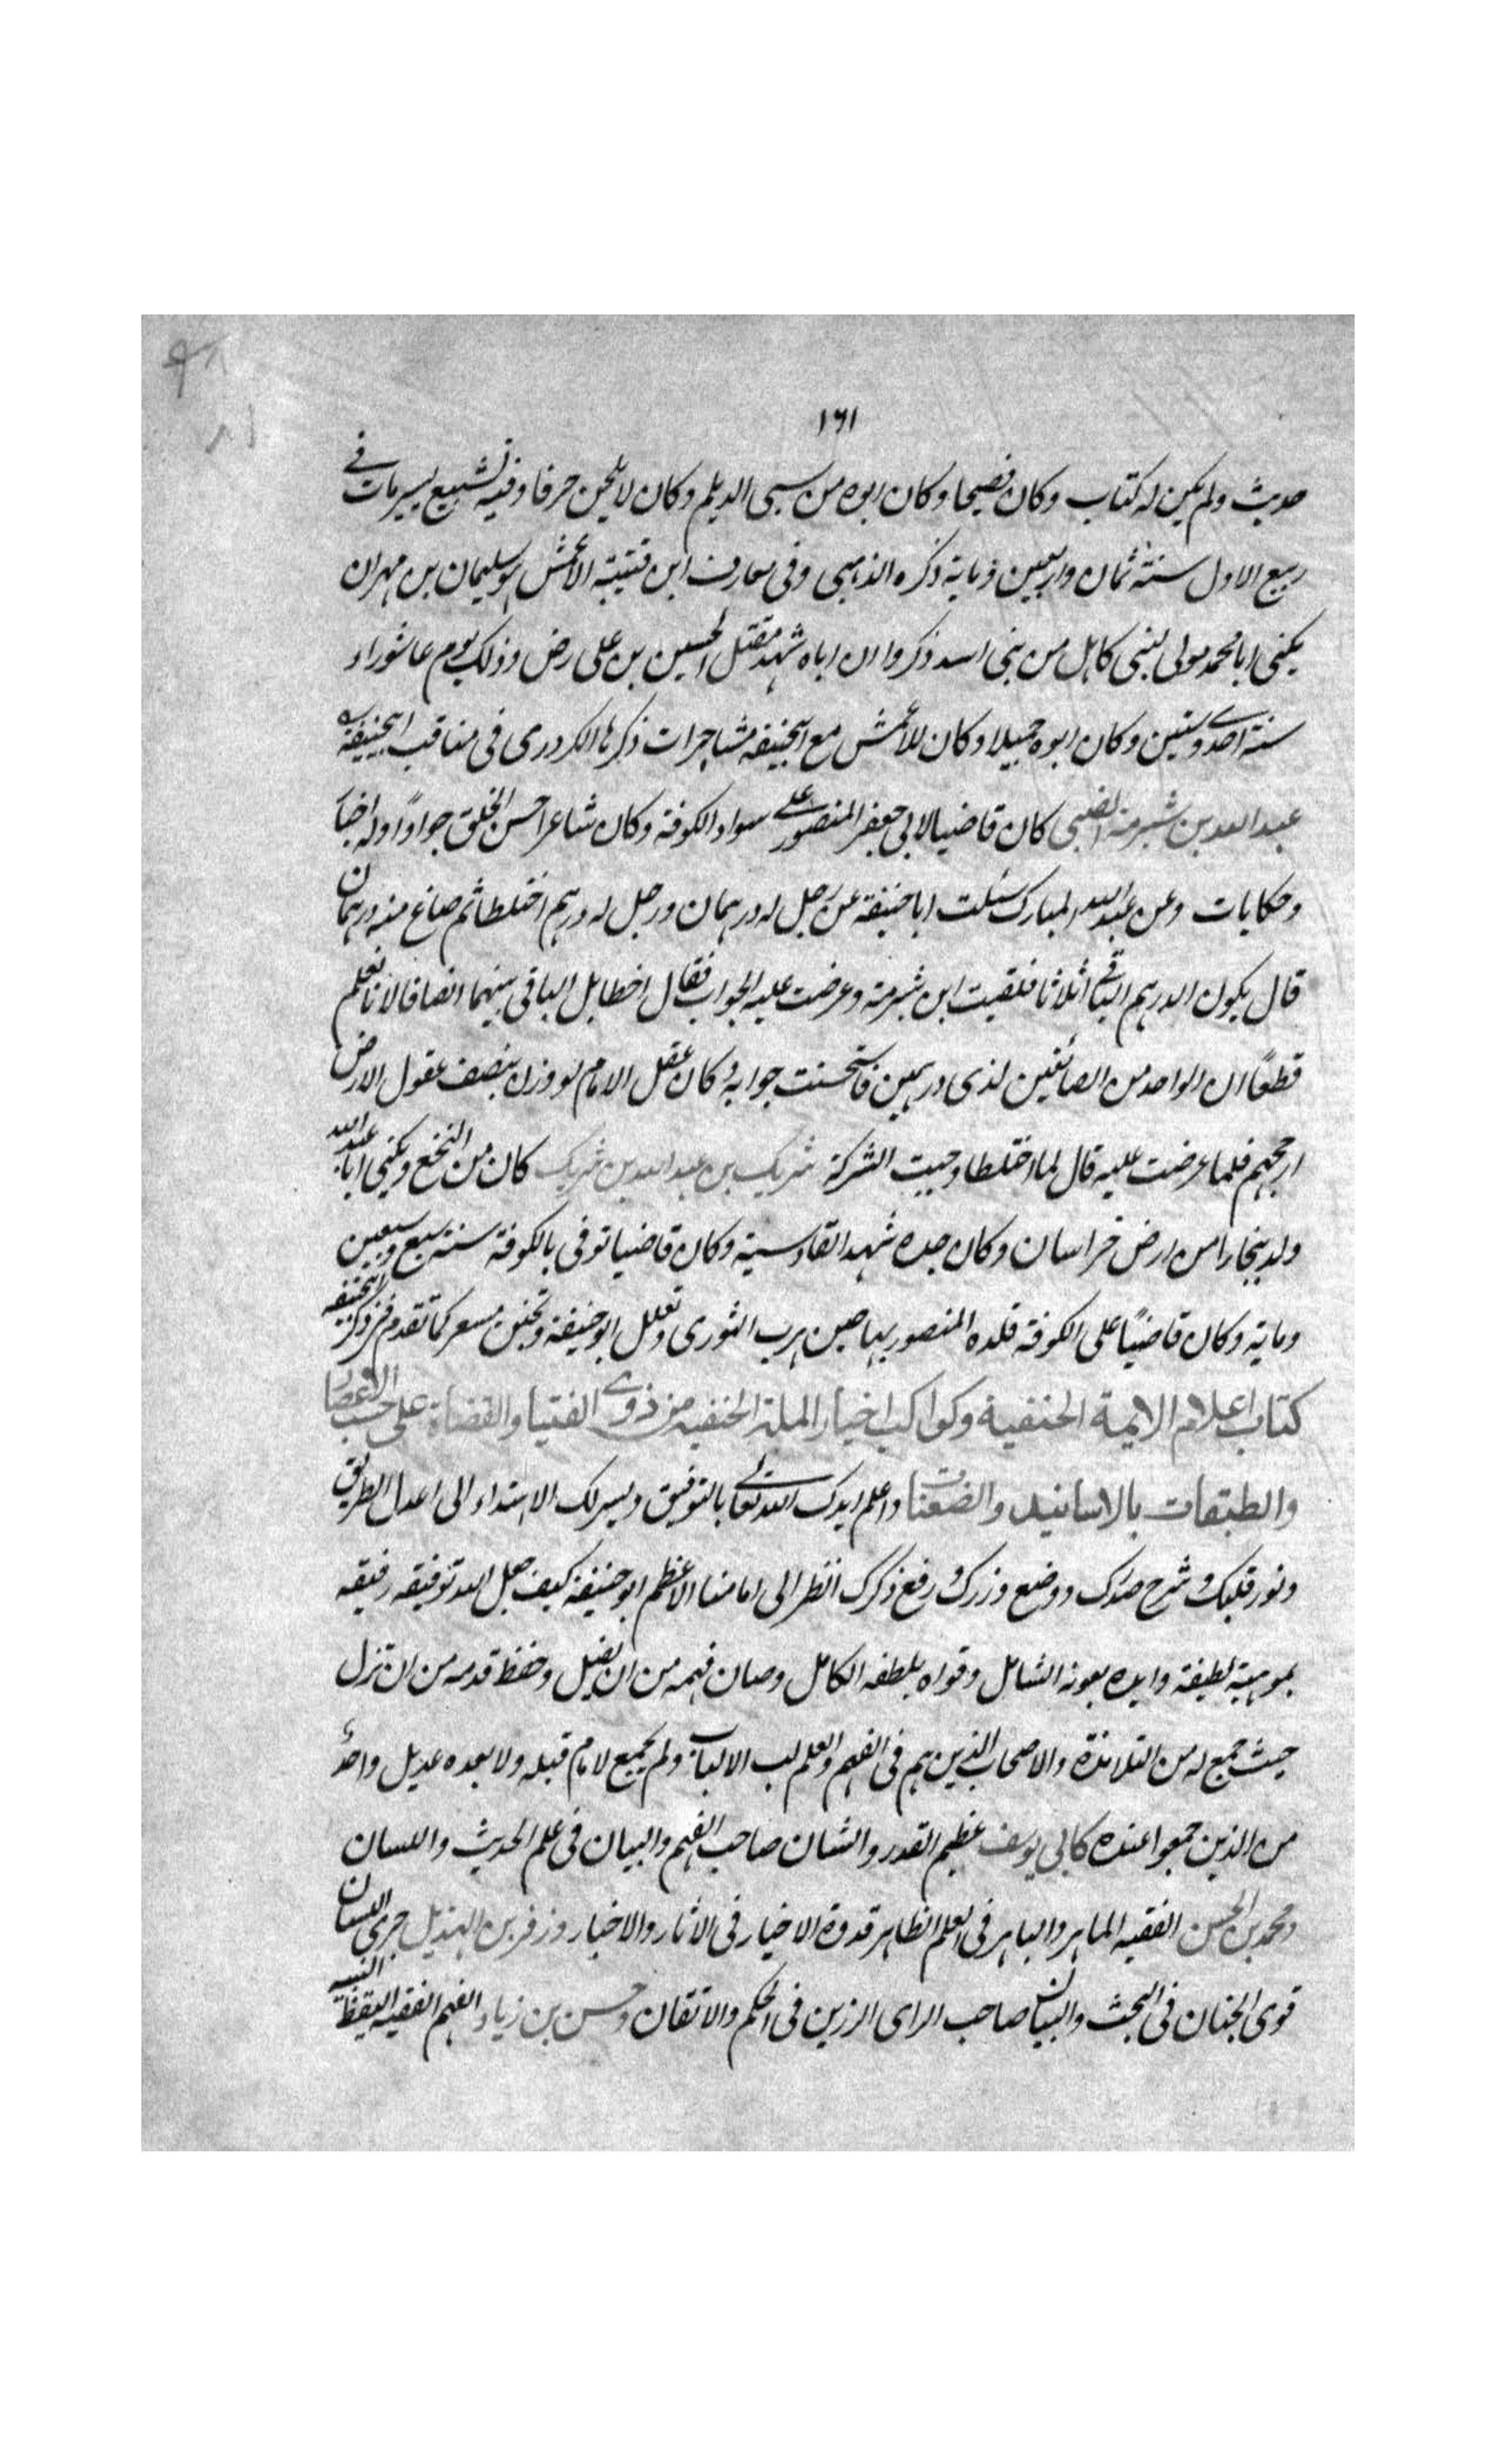 ١٦١
حديث ولم يكن له كتاب وكان فصيحا وكان ابوه من سبى الديلم وكان لا يلحن حرفا وفيه تشيع يسير مات فى
ربيع الاول سنة ثمان واربعين ومایة ذكره الذهبى وفى معارف ابن قتيبة الاعمش هو سليمان بن مهران
يكنى ابا محمد مولى لبنى كاهل من بنى اسد ذكروا ان اباه شهد مقتل الحسين بن على رض وذلك يوم عاشوراء
سنة احدى وستين وكان ابوه حميلا وكان للاعمش مع ابيحنيفة مشاجرات ذكرها الكردرى فى مناقب ابيحنيفة
عبد الله بن شبرمة الضبى كان قاضيا لابى جعفر المنصور على سواد الكوفة وكان شاعرا حسن الخلق جوادًا وله اخبار
وحكايات وعن عبد الله المبارك سئلت ابا حنيفة عن رجل له درهمان ورجل له درهم اختلطا ثم ضاع منه درهمان
قال يكون الدرهم الباقى اثلاثا فلقيت ابن شبرمة وعرضت عليه الجواب فقال اخطا بل الباقى بينهما انصافا لانا نعلم
قطعًا ان الواحد من الضائعين لذى درهمين فاستحسنت جوابه وكان عقل الامام لو وزن بنصف عقول الارض
ارجحهم فلما عرضت عليه قال لما اختلطا وجبت الشركة شريك بن عبد الله بن شريك كان من النخع ويكنى ابا عبد الله
ولد ببخارا من ارض خراسان وكان جده شهد القادسية وكان قاضيا توفى بالكوفة سنة سبع وسبعين
وماية وكان قاضيًا على الكوفة قلده المنصور بها حين هرب الثورى وتعلل ابو حنيفة وتجنن مسعر كما تقدم فى ذكر ابيحنيفة
كتاب اعلام الايمة الحنفية وكواكب اخيار الملة الحنفية من ذوى الفتيا والقضاة على حسب الاعصار
والطبقات بالاسانيد والضعنات واعلم ايدك الله تعالى بالتوفيق ويسر لك الاهتداء الى اعدل الطريق
ونور قلبك وشرح صدرك ووضع وزرك ورفع ذكرك انظر الى امامنا الاعظم ابو حنيفة كيف جعل الله توفيقه رفيقه
بموهبة لطيفة وايده بعونه الشامل وقواه بلطفه الكامل وصان فهمه من ان يضل وحفظ قدمه من ان تزل
حيث جمع له من التلامذة والاصحاب الذين هم فى الفهم والعلم لب الالباب ولم يجمع لامام قبله ولا بعده عديل واحد
من الذين جمعوا عنده كابى يوسف عظيم القدر والشان صاحب الفهم والبيان فى علم الحديث واللسان
ومحمد بن الحسن الفقيه الماهر والباهر فى العلم الظاهر قدوة الاخيار فى الاثار والاخبار وزفر بن الهذيل جرى اللسان
قوى الجنان فى البحث والبيان صاحب الراى الرزين فى الحكم والاتقان وحسن بن زياد الفهم الفقيه اليقظ النبيه